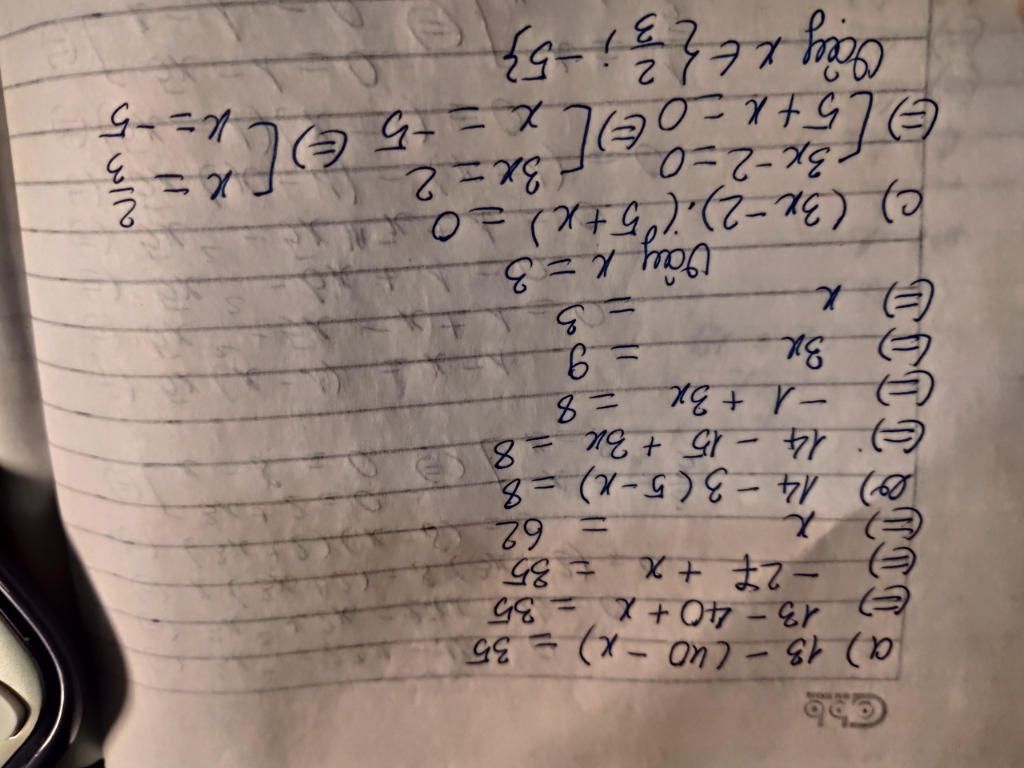 a) 13 - (40 - x) = 35
(=) 13 - 40 + x = 35
(=) - 27 + x = 35
(=) x = 62
b) 14 - 3(5-x) = 8
(=) 14 - 15 + 3x = 8
(=) - 1 + 3x = 8
(=) 3x = 9
(=) x = 3
Vậy x = 3
c) (3x-2).(5+x) = 0
(=) [ 3x-2=0 (=) [ 3x = 2 (=) [ x = 2/3
5+x=0 x = -5 x = -5
Vậy x ∈ { 2/3 ; -5}